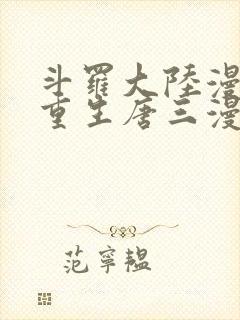 斗羅大陸漫
重生唐三漫
范寧韞